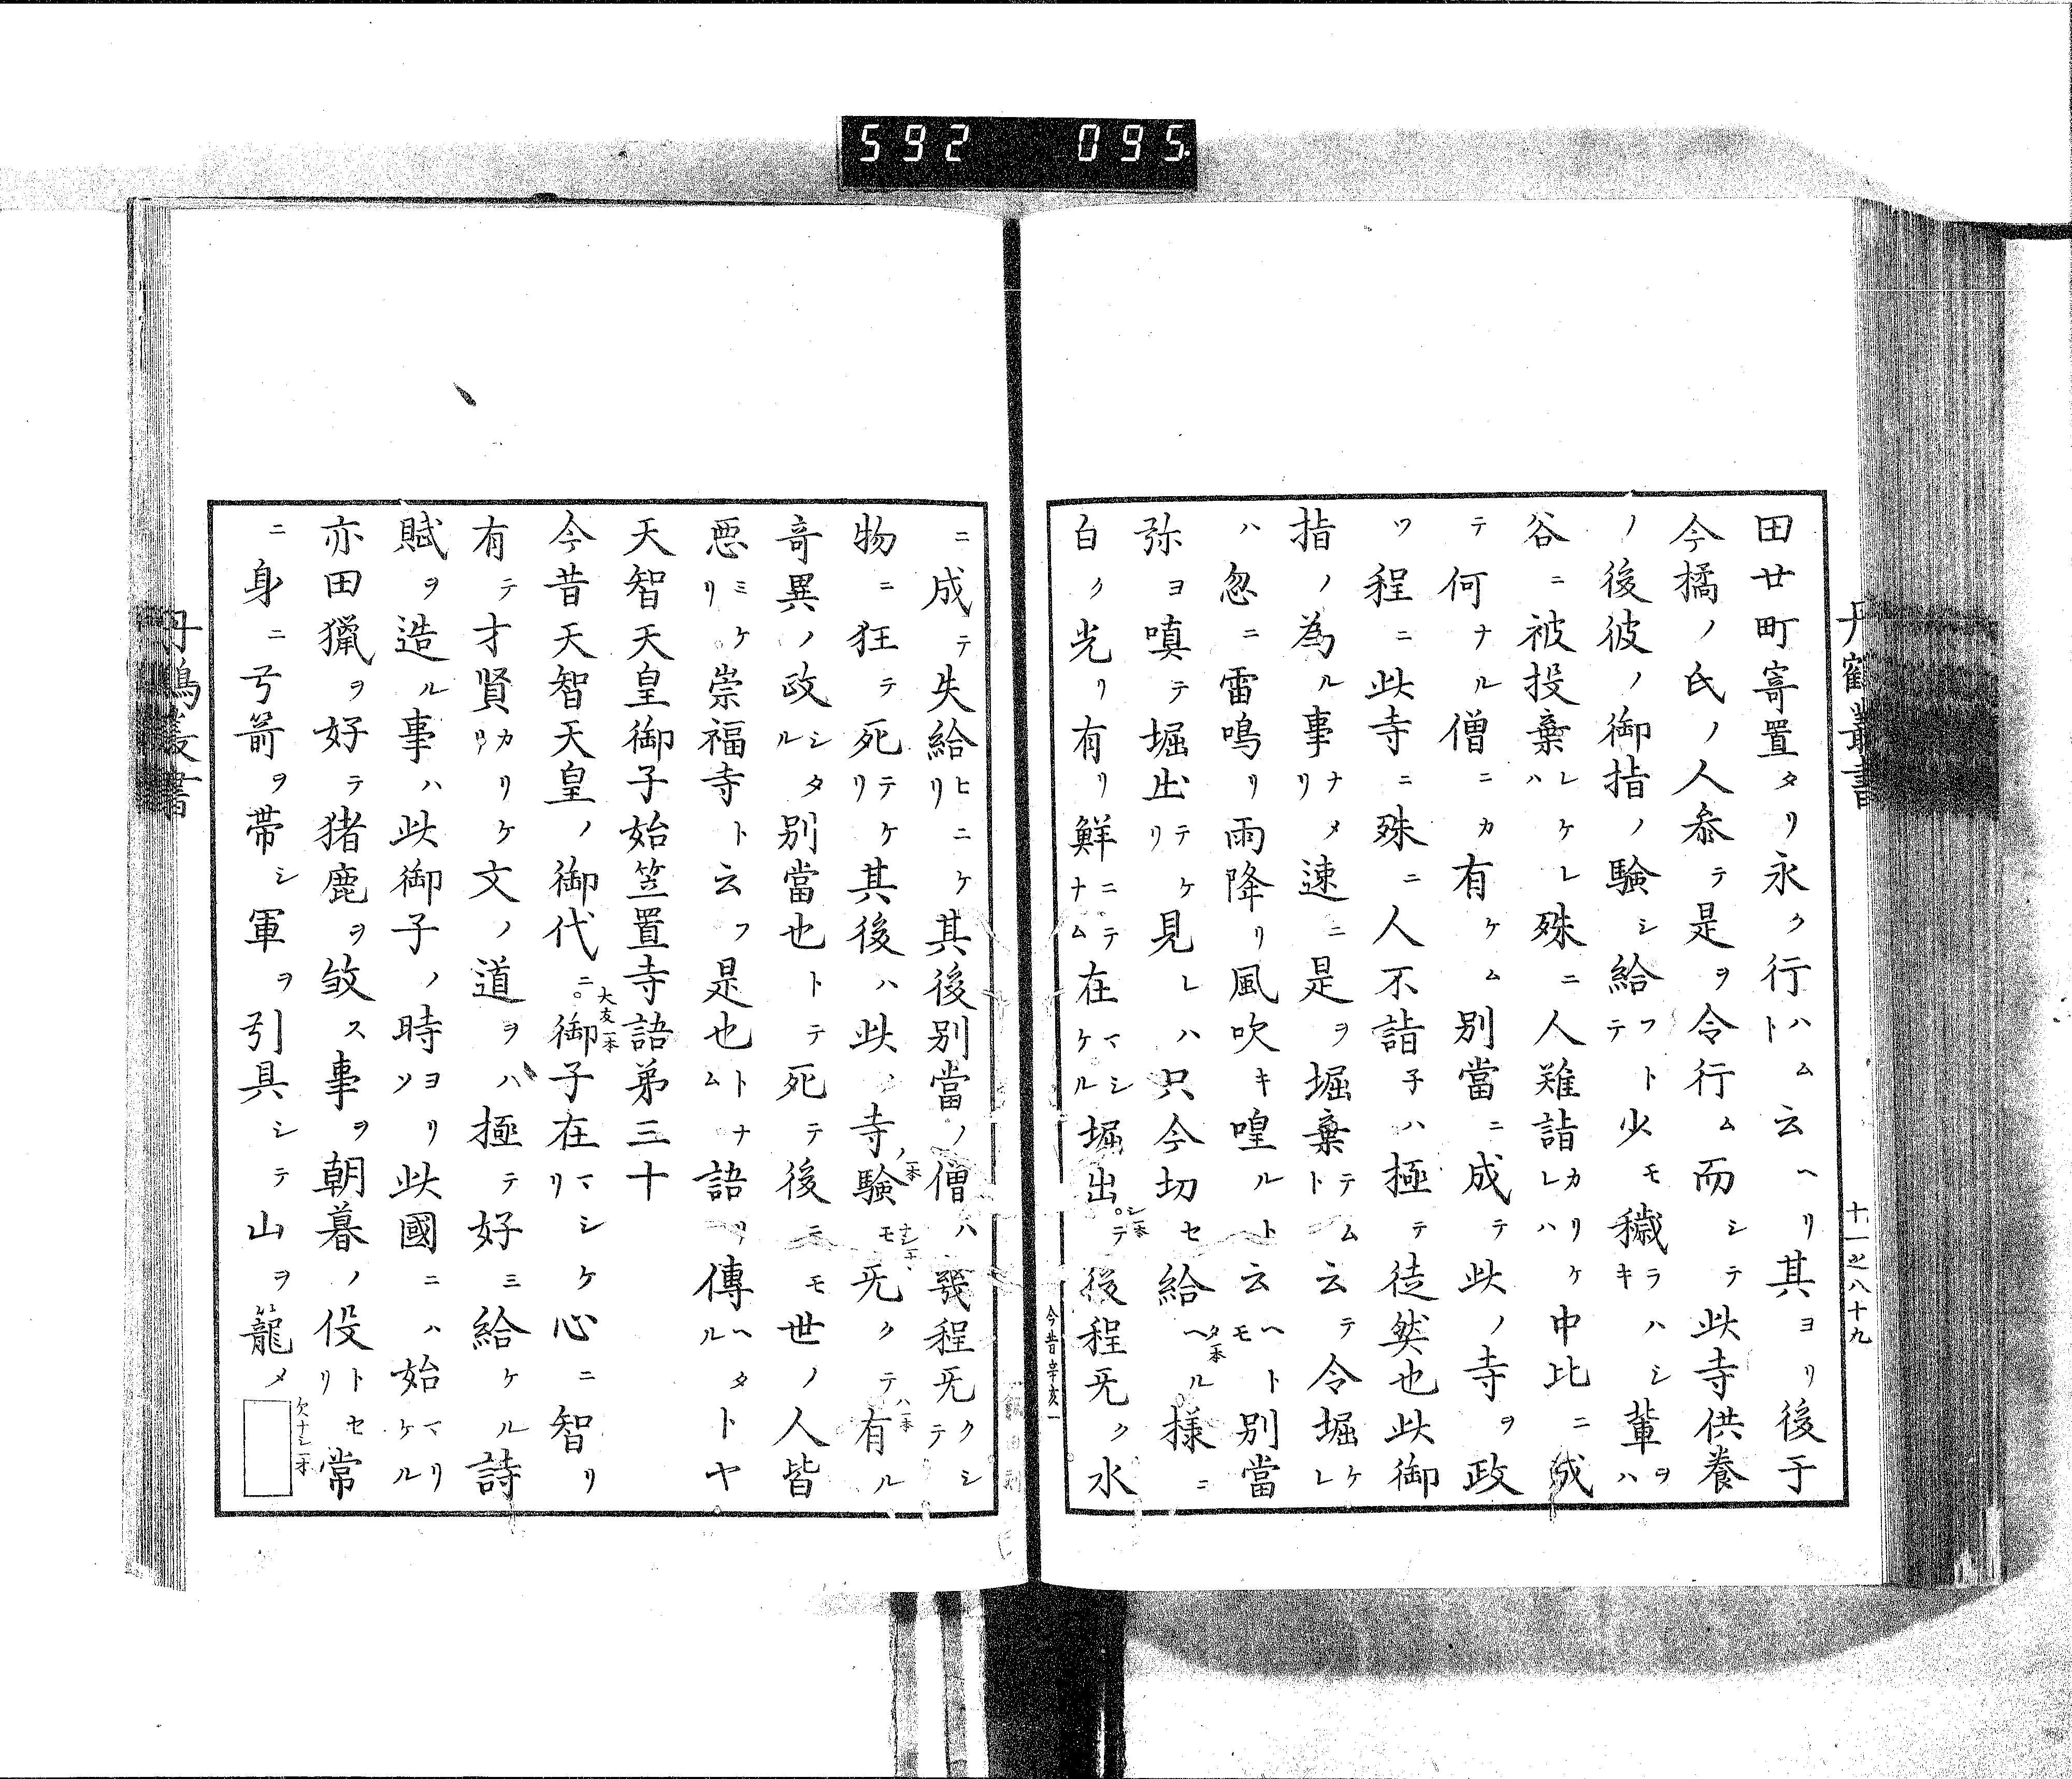 丹鶴叢書
十一之八十九
田廿町寄置タリ永ク行ハムト云ヘリ其ヨリ後于
今橘ノ氏ノ人叅テ是ヲ令行ム而シテ此寺供養
ノ後彼ノ御指ノ驗シ給フトテ少モ穢ラハシキ輩ヲハ
谷ニ被投棄レケレハ殊ニ人難詣カリケレハ中比ニ成
テ何ナル僧ニカ有ケム別當ニ成テ此ノ寺ヲ政
ツ程ニ此寺ニ殊ニ人不詣子ハ極テ徒然也此御
指ノ為ル事ナメリ速ニ是ヲ堀棄テムト云テ令堀ケレ
ハ忽ニ雷鳴リ雨降リ風吹キ喤ルト云ヘトモ別當
弥ヨ嗔テ堀出テケリ見レハ只今切セ給ヘル様ニ
タ一本
白ク光リ有リ鮮ニテナム在マシケル。堀出。テ後程无ク水
シ一本
今昔辛亥一
ニ成テ失給ヒニケリ其後別當ノ僧ハ幾程无クシテ
物ニ狂テ死テケリ其後ハ此ノ寺驗モ无クテ有ル
ノ一本
ハ一本
奇異ノ政シタル別當也トテ死テ後ニモ世ノ人皆
悪ミケリ。崇福寺ト云フ是也トナム語リ傳ヘタルトヤ
天智天皇御子始笠置寺語弟三十
今昔天智天皇ノ御代ニ。御子在マシケリ心ニ智リ
大友一本
有テ才賢カリケリ文ノ道ヲハ極テ好ミ給ケル詩
賦ヲ造ル事ハ此御子ノ時ヨリソ此國ニハ始マリケル
亦田獵ヲ好テ猪鹿ヲ敓ス事ヲ朝暮ノ役トセリ常
ニ身ニ弓箭ヲ帯シ軍ヲ引具シテ山ヲ籠メ
欠ナシ一本
丹鶴叢書
592 095